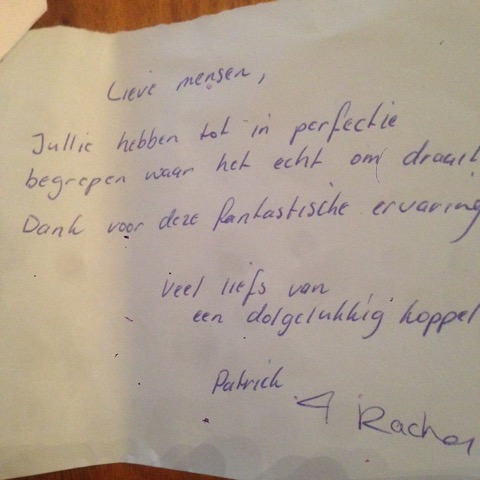 Lieve mensen,
Jullie hebben tot in perfectie
begrepen waar het echt om draait
Dank voor deze fantastische ervaring
Veel liefs van
een dolgelukkig koppel
Patrick
&